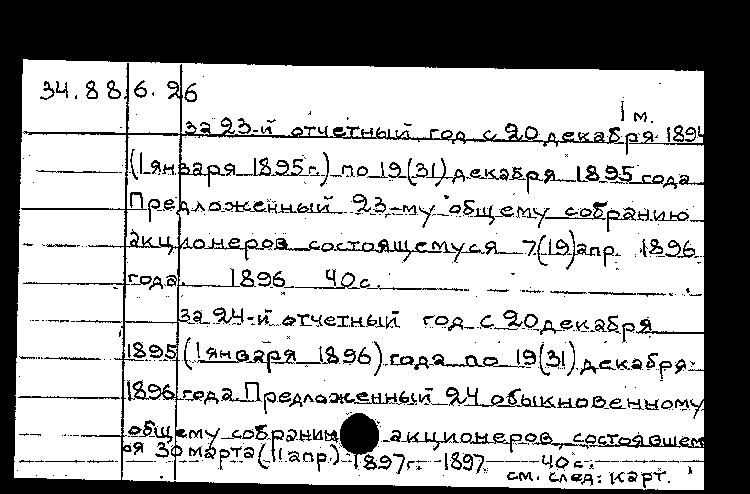 34.88.6.26
1 м.
за 23-й отчетный год с 20 декабря 1894
(1 января 1895 г.) по 19 (31) декабря 1895 года
Предложенный 23-му общему собранию
акционеров состоящемуся 7(19) апр. 1896
года. 1896 40 с.
за 24-й отчетный год с 20 декабря
1895 (1 января 1896) года по 19 (31) декабря
1896 года Предложенный 24 обыкновенному
общему собранию акционеров, состоявшем
ся 30 марта (11 апр.) 1897 г. 1897. 40 с.
см. след. карт.